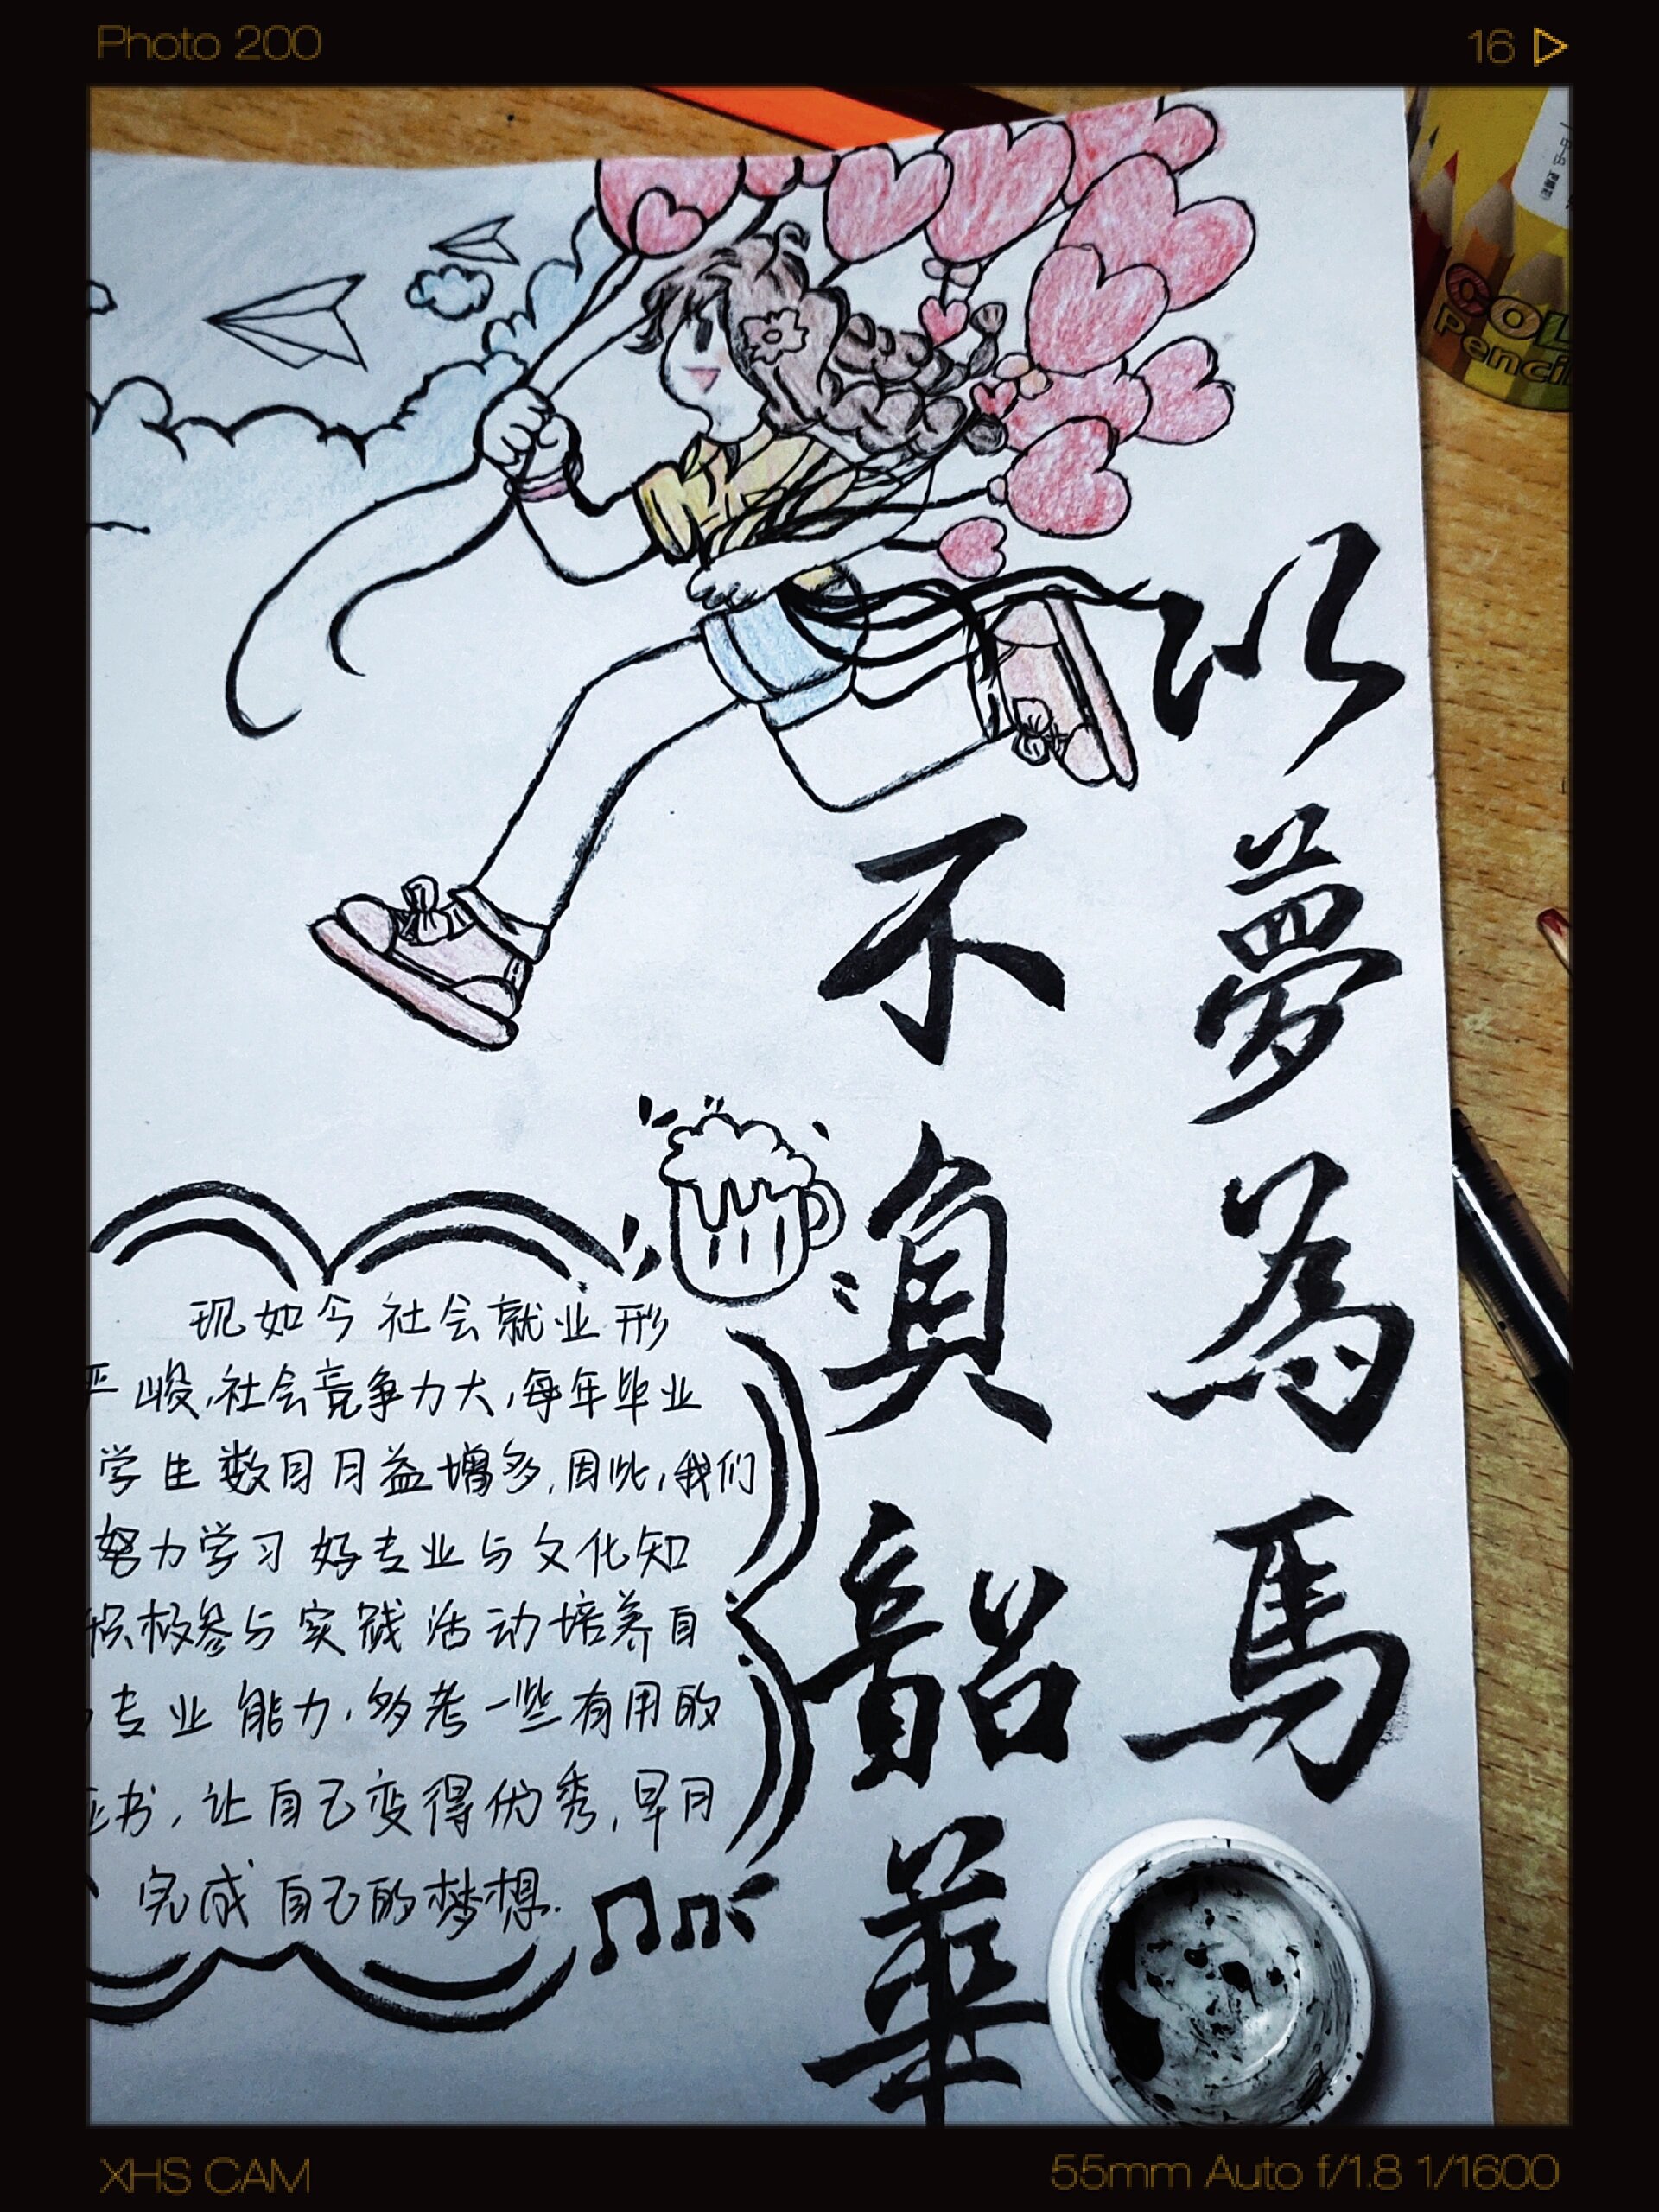 Photo 200
16
COL
Pencil
以夢為馬
不負韶華
现如今社会就业形
严峻,社会竞争力大,每年毕业
学生数目月益增多,因此,我们
努力学习好专业与文化知
积极参与实践活动培养自
专业能力,多考一些有用的
证书,让自己变得优秀,早月
完成自己的梦想.
XHS CAM
55mm Auto f/1.8 1/1600